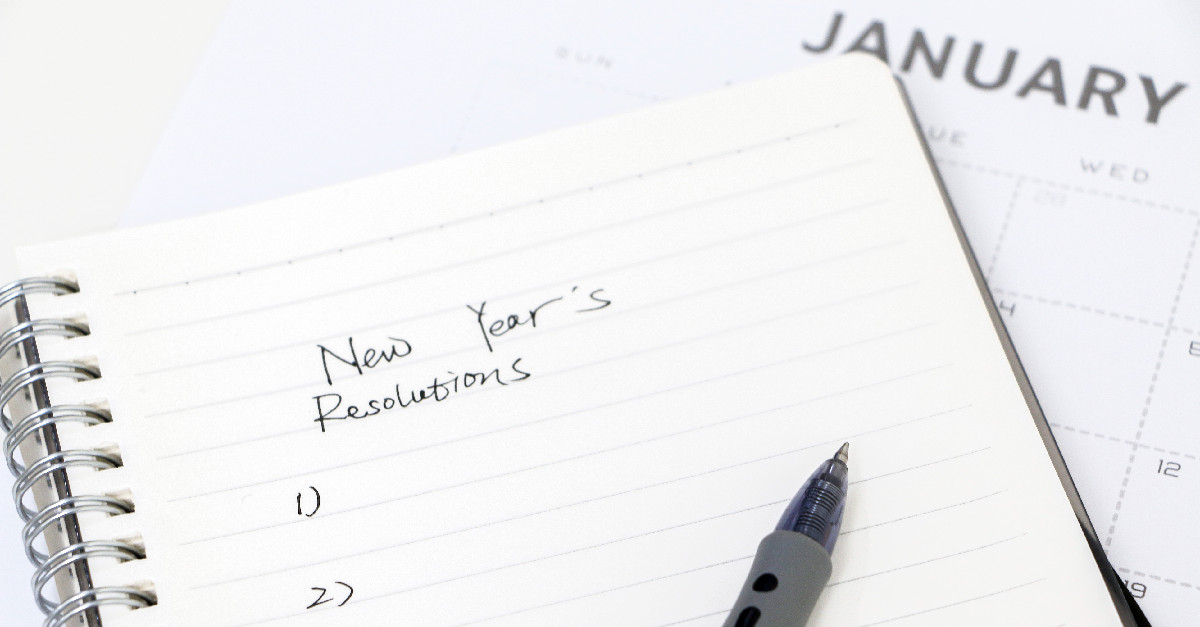 JANUARY
SUN
UE
WED
4
12
19
New Year's
Resolutions
1)
2)